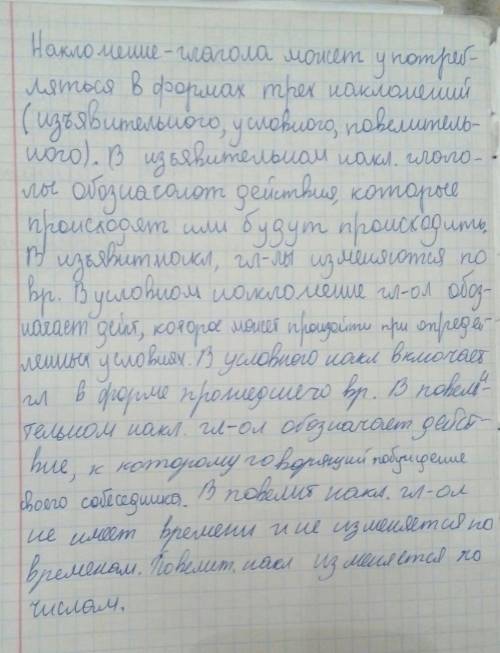 Наклонение-глагола может употреб-
ляться в формах трех наклонений
(изъявительного, условного, повелитель-
ного). В изъявительном накл. глаго-
лы обозначают действия, которые
происходят или будут происходить.
В изъявит накл, гл-лы изменяются по
вр. В условном наклонение гл-ол обоз-
начает дейт, которое может произойти при определ
ленных условиях. В условного накл включает
гл в форме прошедшего вр. В повели-
тельном накл. гл-ол обозначает дейст-
вие, к которому говорящий побуждение
своего собеседника. В повелит накл. гл-ол
не имеет времени и не изменяется по
временам. Повелит. накл изменяется по
числам.